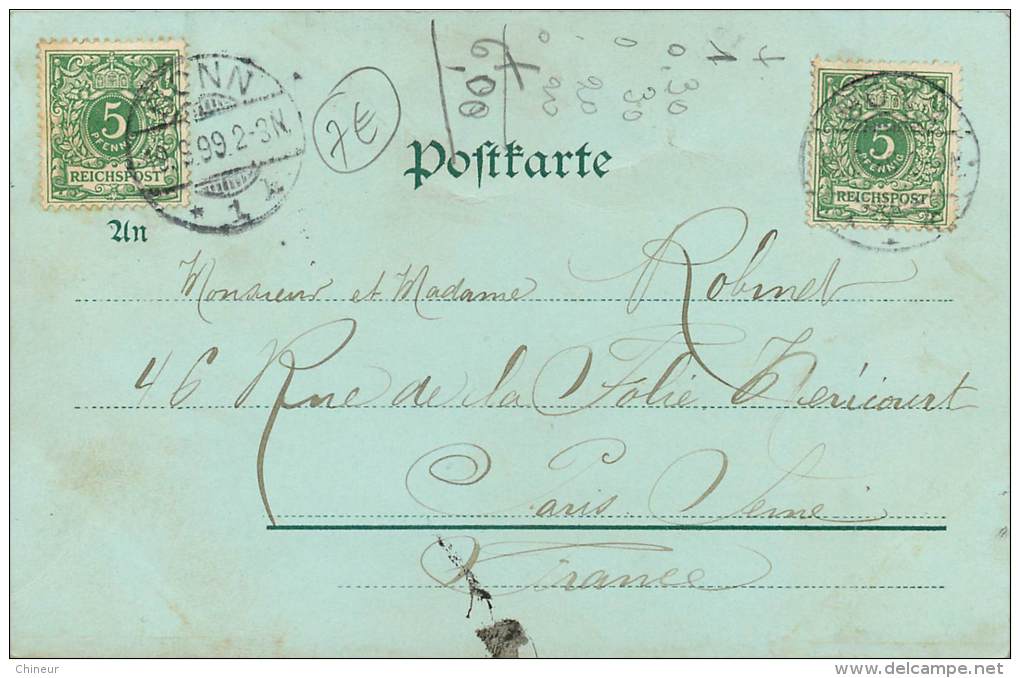 5
PFENNIG
REICHSPOST
BONN
99.2-3N.
* 1 k
7€
6,00
+
1
0,30
30
20
Postkarte
5
PFENNIG
REICHSPOST
An
Monsieur et Madame Robinet
46 Rue de la Folie Méricourt
Paris Seine
France
Chineur
delcampe.net